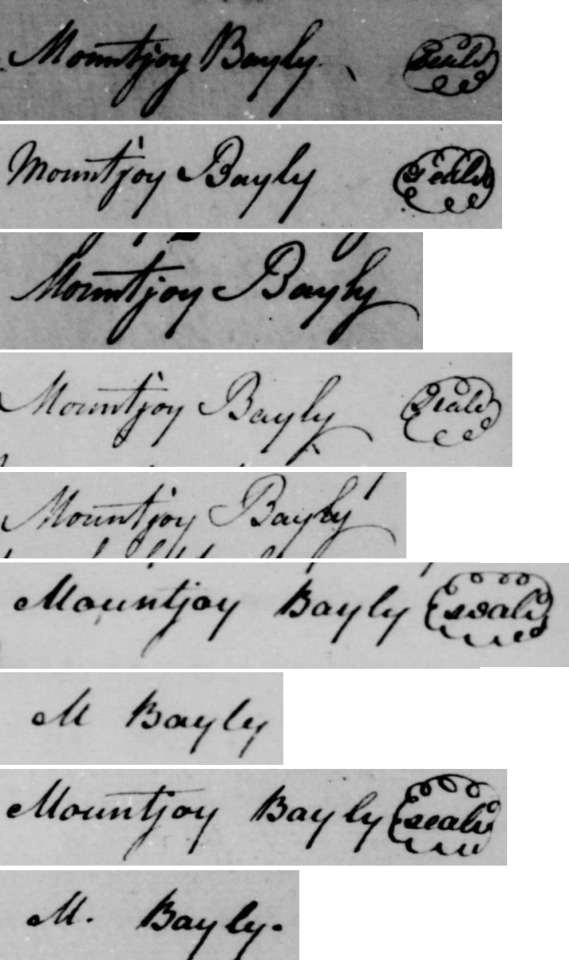 Mountjoy Bayly. Seal
Mountjoy Bayly Seal
Mountjoy Bayly
Mountjoy Bayly Seal
Mountjoy Bayly
Mountjoy Bayly seal
M Bayly
Mountjoy Bayly seal
M. Bayly.